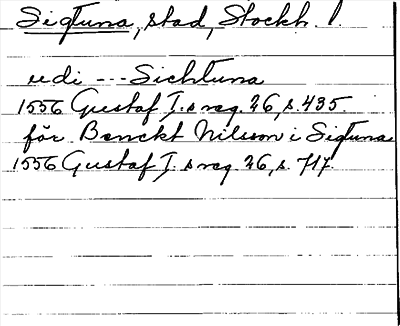 Sigtuna, stad, Stockh. l.
udi --- Sichtuna
1556 Gustaf I:s reg. 26, s. 435.
för Benckt Nilsson i Sigtuna
1556 Gustaf I:s reg. 26, s. 717.